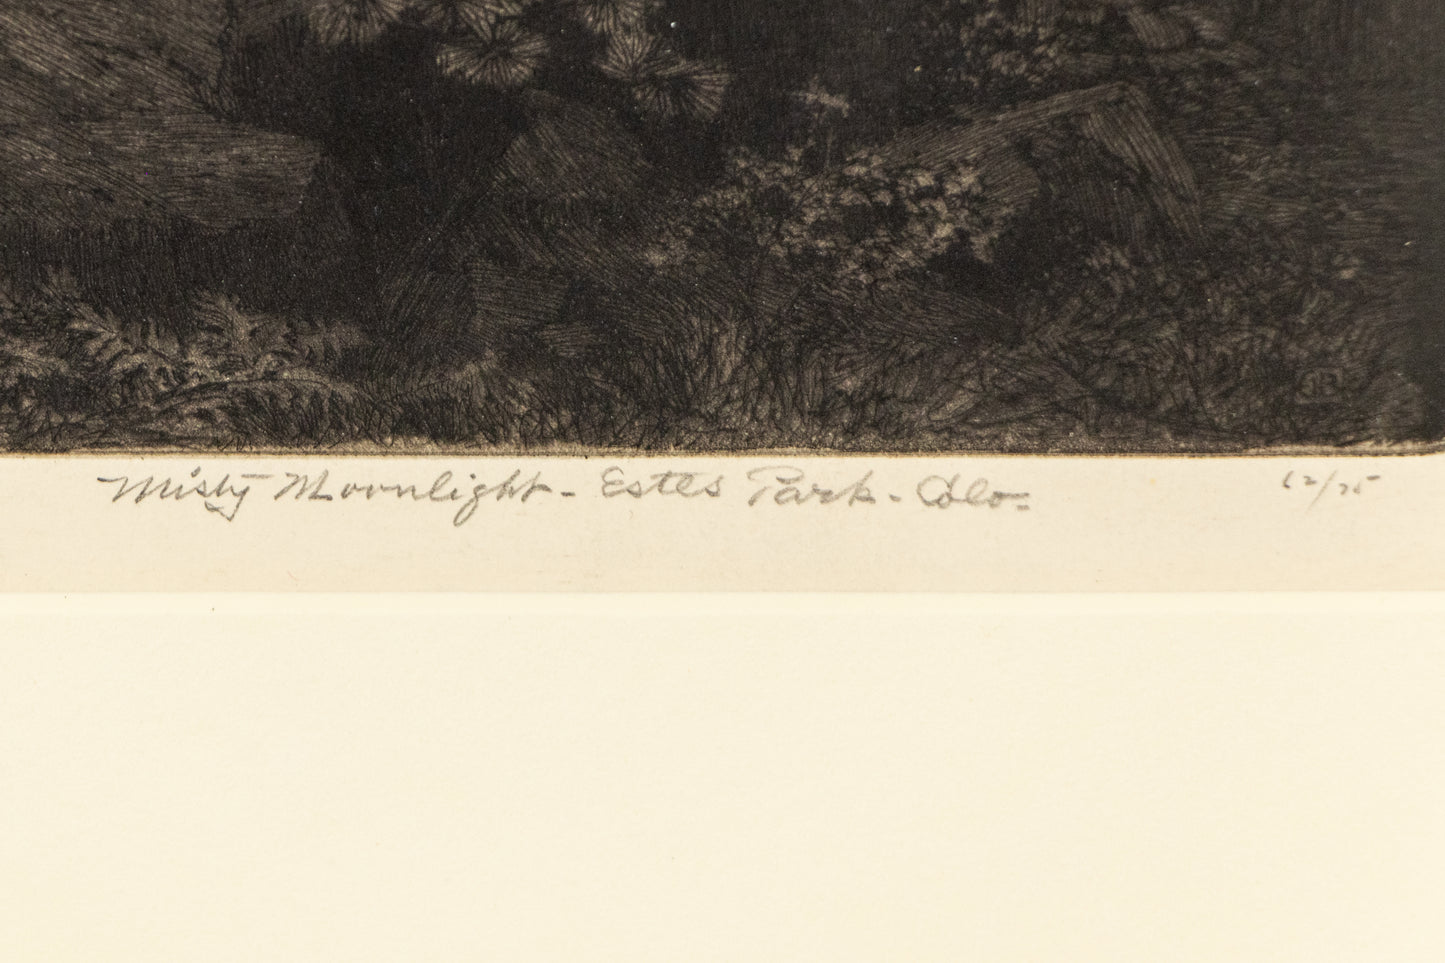 Misty Moonlight - Estes Park - Colo - 62/75